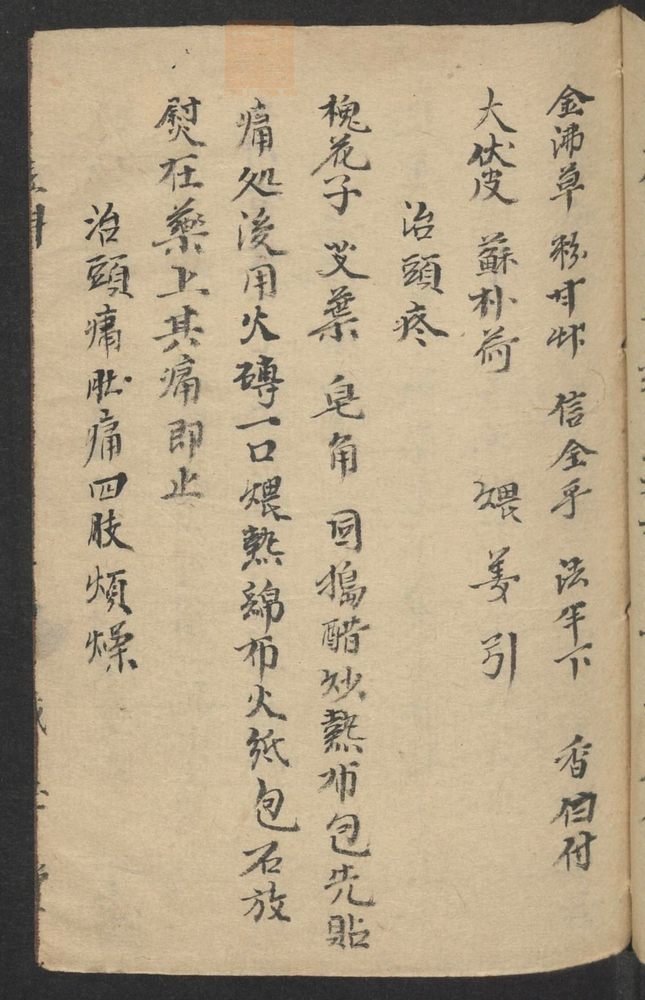 金沸草 粉甘草 信全乎 法半下 香白付
大伏皮 蘇朴荷 煨姜引
治頭疼
槐花子 艾葉 皂角 同搗醋炒熱布包先貼
痛処後用火磚一口煨熱綿布火紙包石放
熨在藥上其痛即止
治頭痛肚痛四肢煩燥